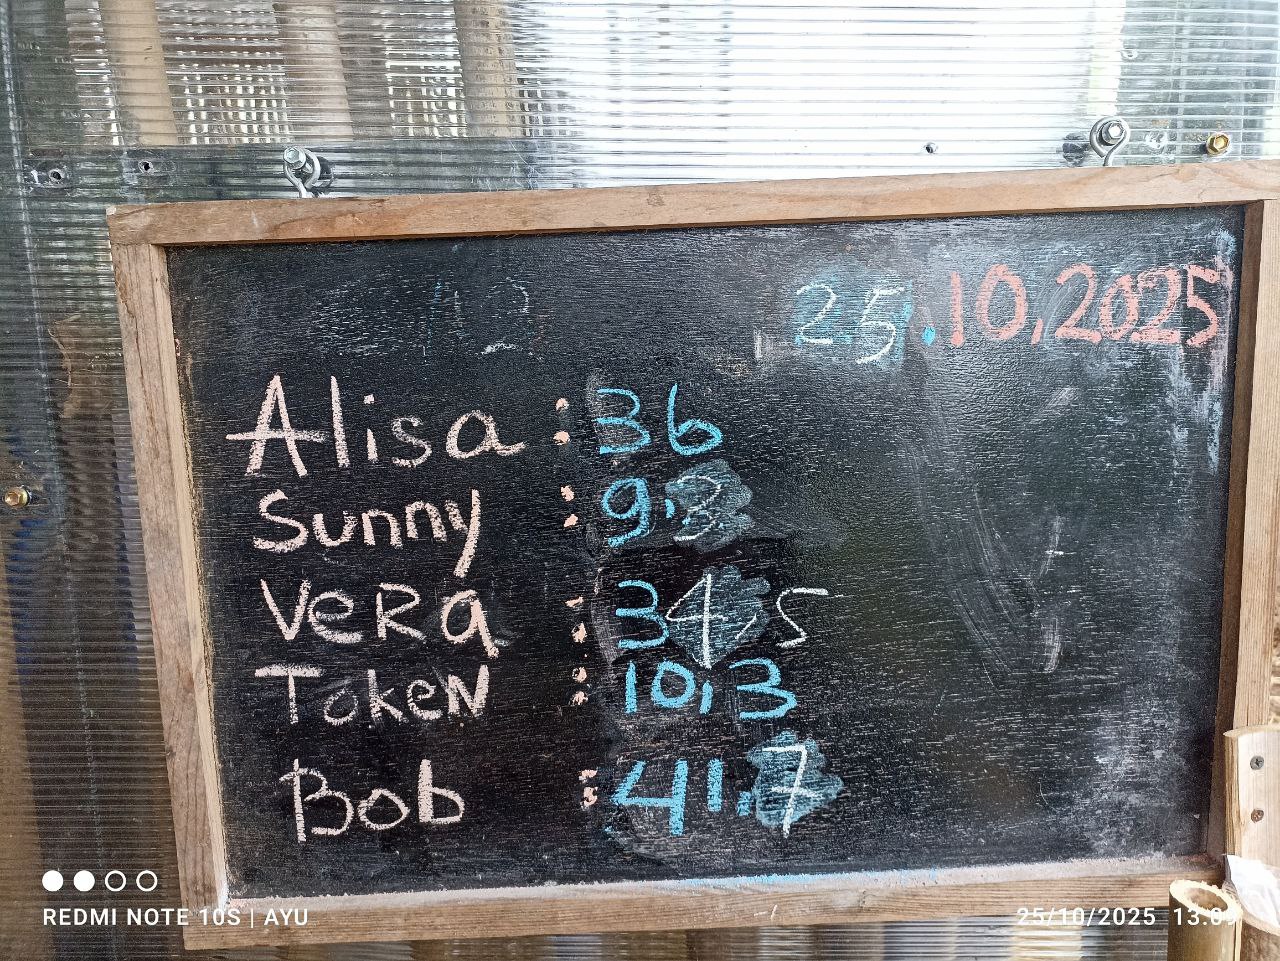 25.10,2025
Alisa : 36
Sunny : 9.3
VeRa : 34,5
TokeN : 10,3
Bob : 41.7
REDMI NOTE 10S | AYU
25/10/2025 13:09